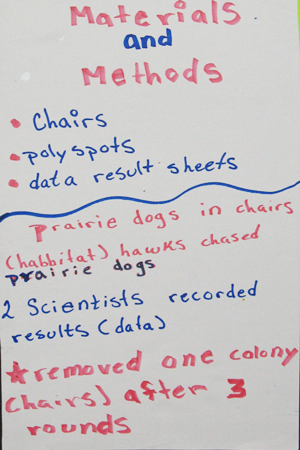 Materials
and
Methods
• Chairs
• poly spots
• data result sheets
Prairie dogs in chairs
(habbitat) hawks chased
prairie dogs
2 Scientists recorded
results (data)
★ removed one colony
(chairs) after 3
rounds